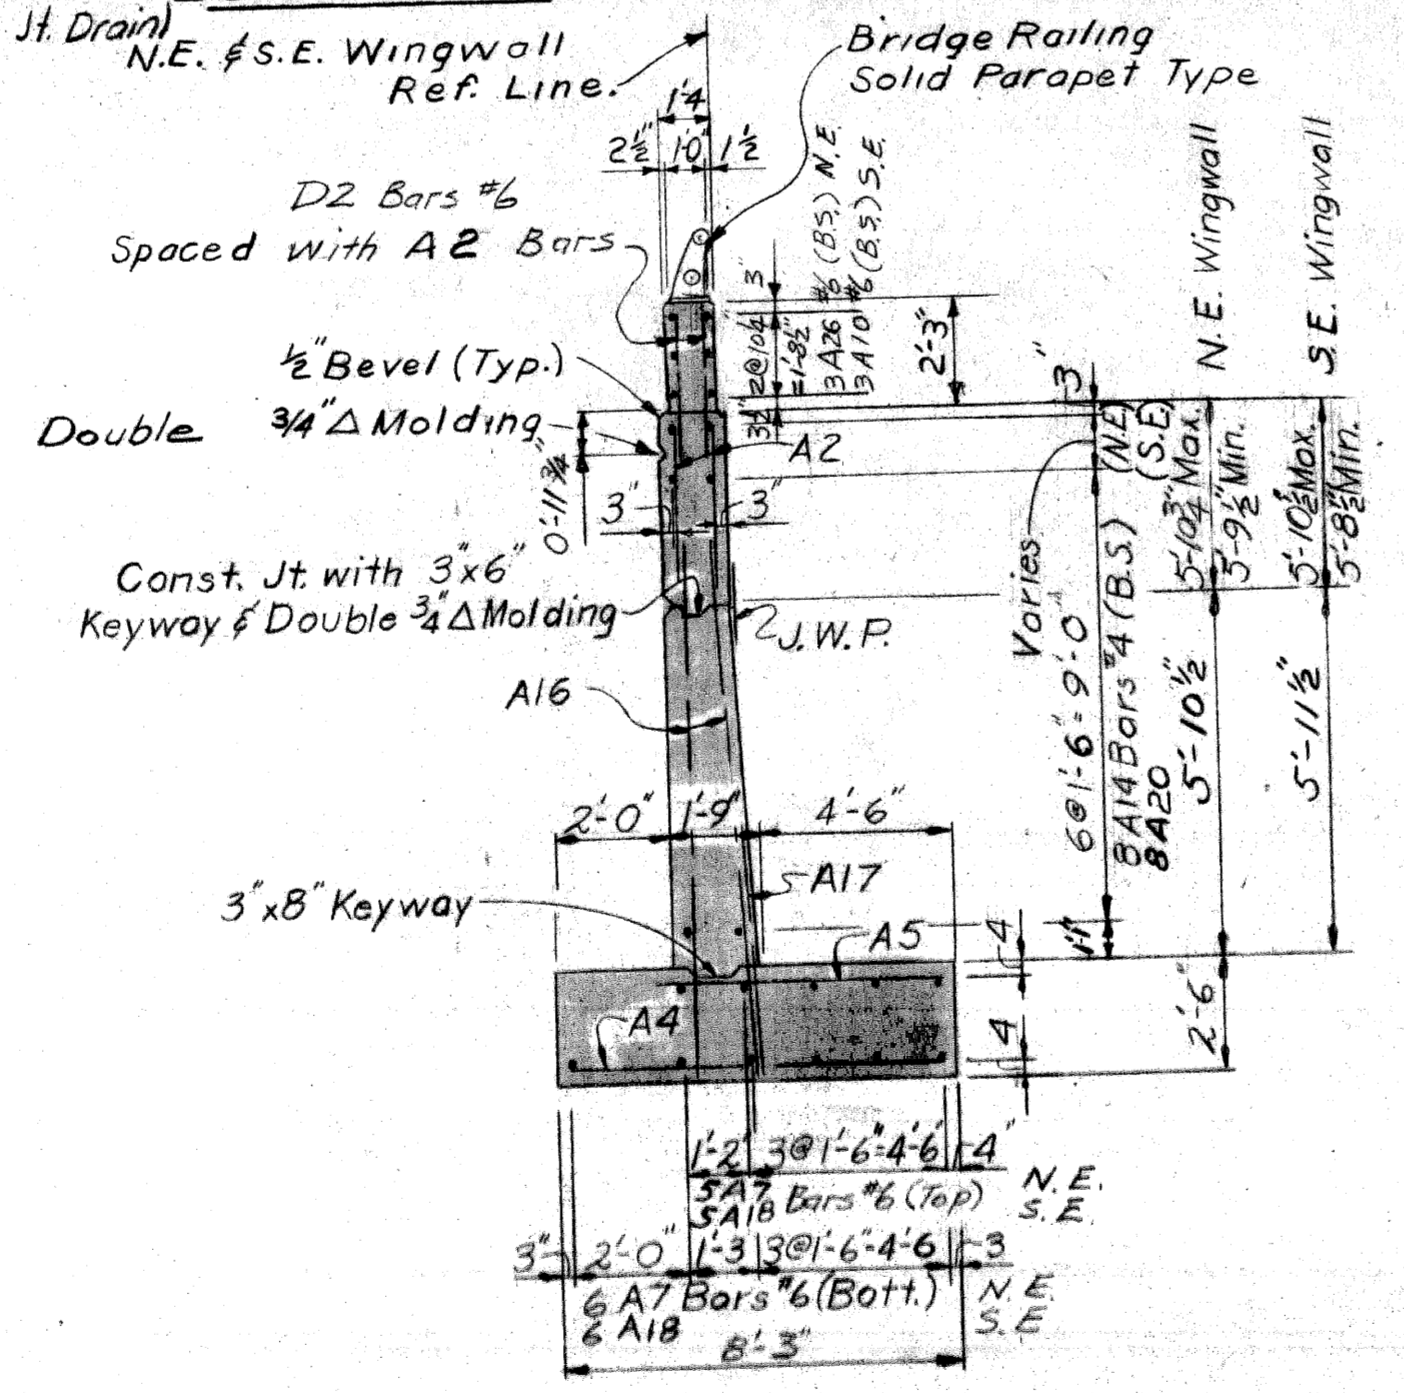 Jt. Drain)
N.E. & S.E. Wingwall
Ref. Line.
Bridge Railing
Solid Parapet Type
1'-4
2½" 1'-0" 1½
D2 Bars #6
Spaced with A2 Bars
½" Bevel (Typ.)
Double ¾" Δ Molding
0'-11¾"
3" 3"
A2
Const. Jt. with 3"x6"
Keyway & Double ¾" Δ Molding
J.W.P.
A16
3"
2@10¼
=1'-8½"
3½"
3A26 #6 (B.S.) N.E.
3A10 #6 (B.S.) S.E.
2'-3"
3"
Varies
6@1'-6"=9'-0"
8A14 Bars #4 (B.S.) (N.E.)
8A20 (S.E.)
1'-1"
N.E. Wingwall
5'-10¾" Max.
5'-9½" Min.
5'-10½"
S.E. Wingwall
5'-10½" Max.
5'-8½" Min.
5'-11½"
2'-0" 1'-9" 4'-6"
A17
3"x8" Keyway
A5
A4
4
4
2'-6"
1'-2" 3@1'-6"=4'-6" 4"
5A7 Bars #6 (Top) N.E.
5A18 S.E.
3" 2'-0" 1'-3 3@1'-6"=4'-6 3
6 A7 Bars #6 (Bott.) N.E.
6 A18 S.E
8'-3"